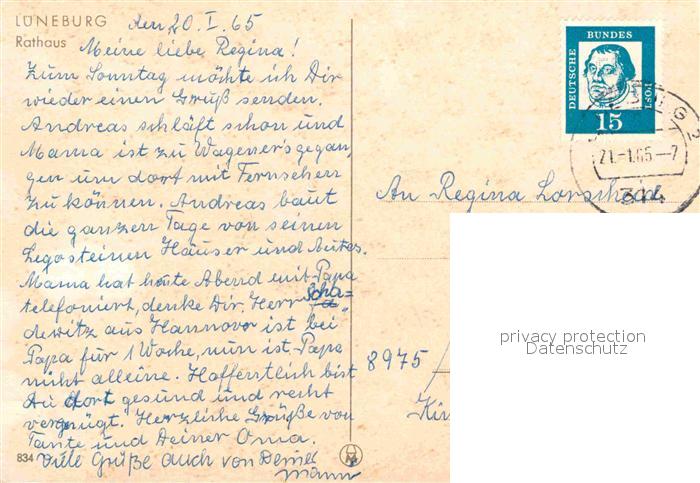 LÜNEBURG
Rathaus
den 20. I. 65
Meine liebe Regina!
Zum Sonntag möchte ich Dir
wieder einen Gruß senden.
Andreas schläft schon und
Mama ist zu Wagener's gegan,
gen um dort mit Fernsehen
zu können. Andreas baut
die ganzen Tage von seinen
Legosteinen Häuser und Autos.
Mama hat heute Abend mit Papa
telefoniert, denke Dir, Herr Scha=
dewitz aus Hannover ist bei
Papa für 1 Woche, nun ist Papa
nicht alleine. Hoffentlich bist
Du dort gesund und recht
vergnügt. Herzliche Grüße von
Tante und Deiner Oma.
Viele Grüße auch von
834
DEUTSCHE BUNDESPOST
15
21.-1.65-7
An Regina
8975
privacy protection
Datenschutz